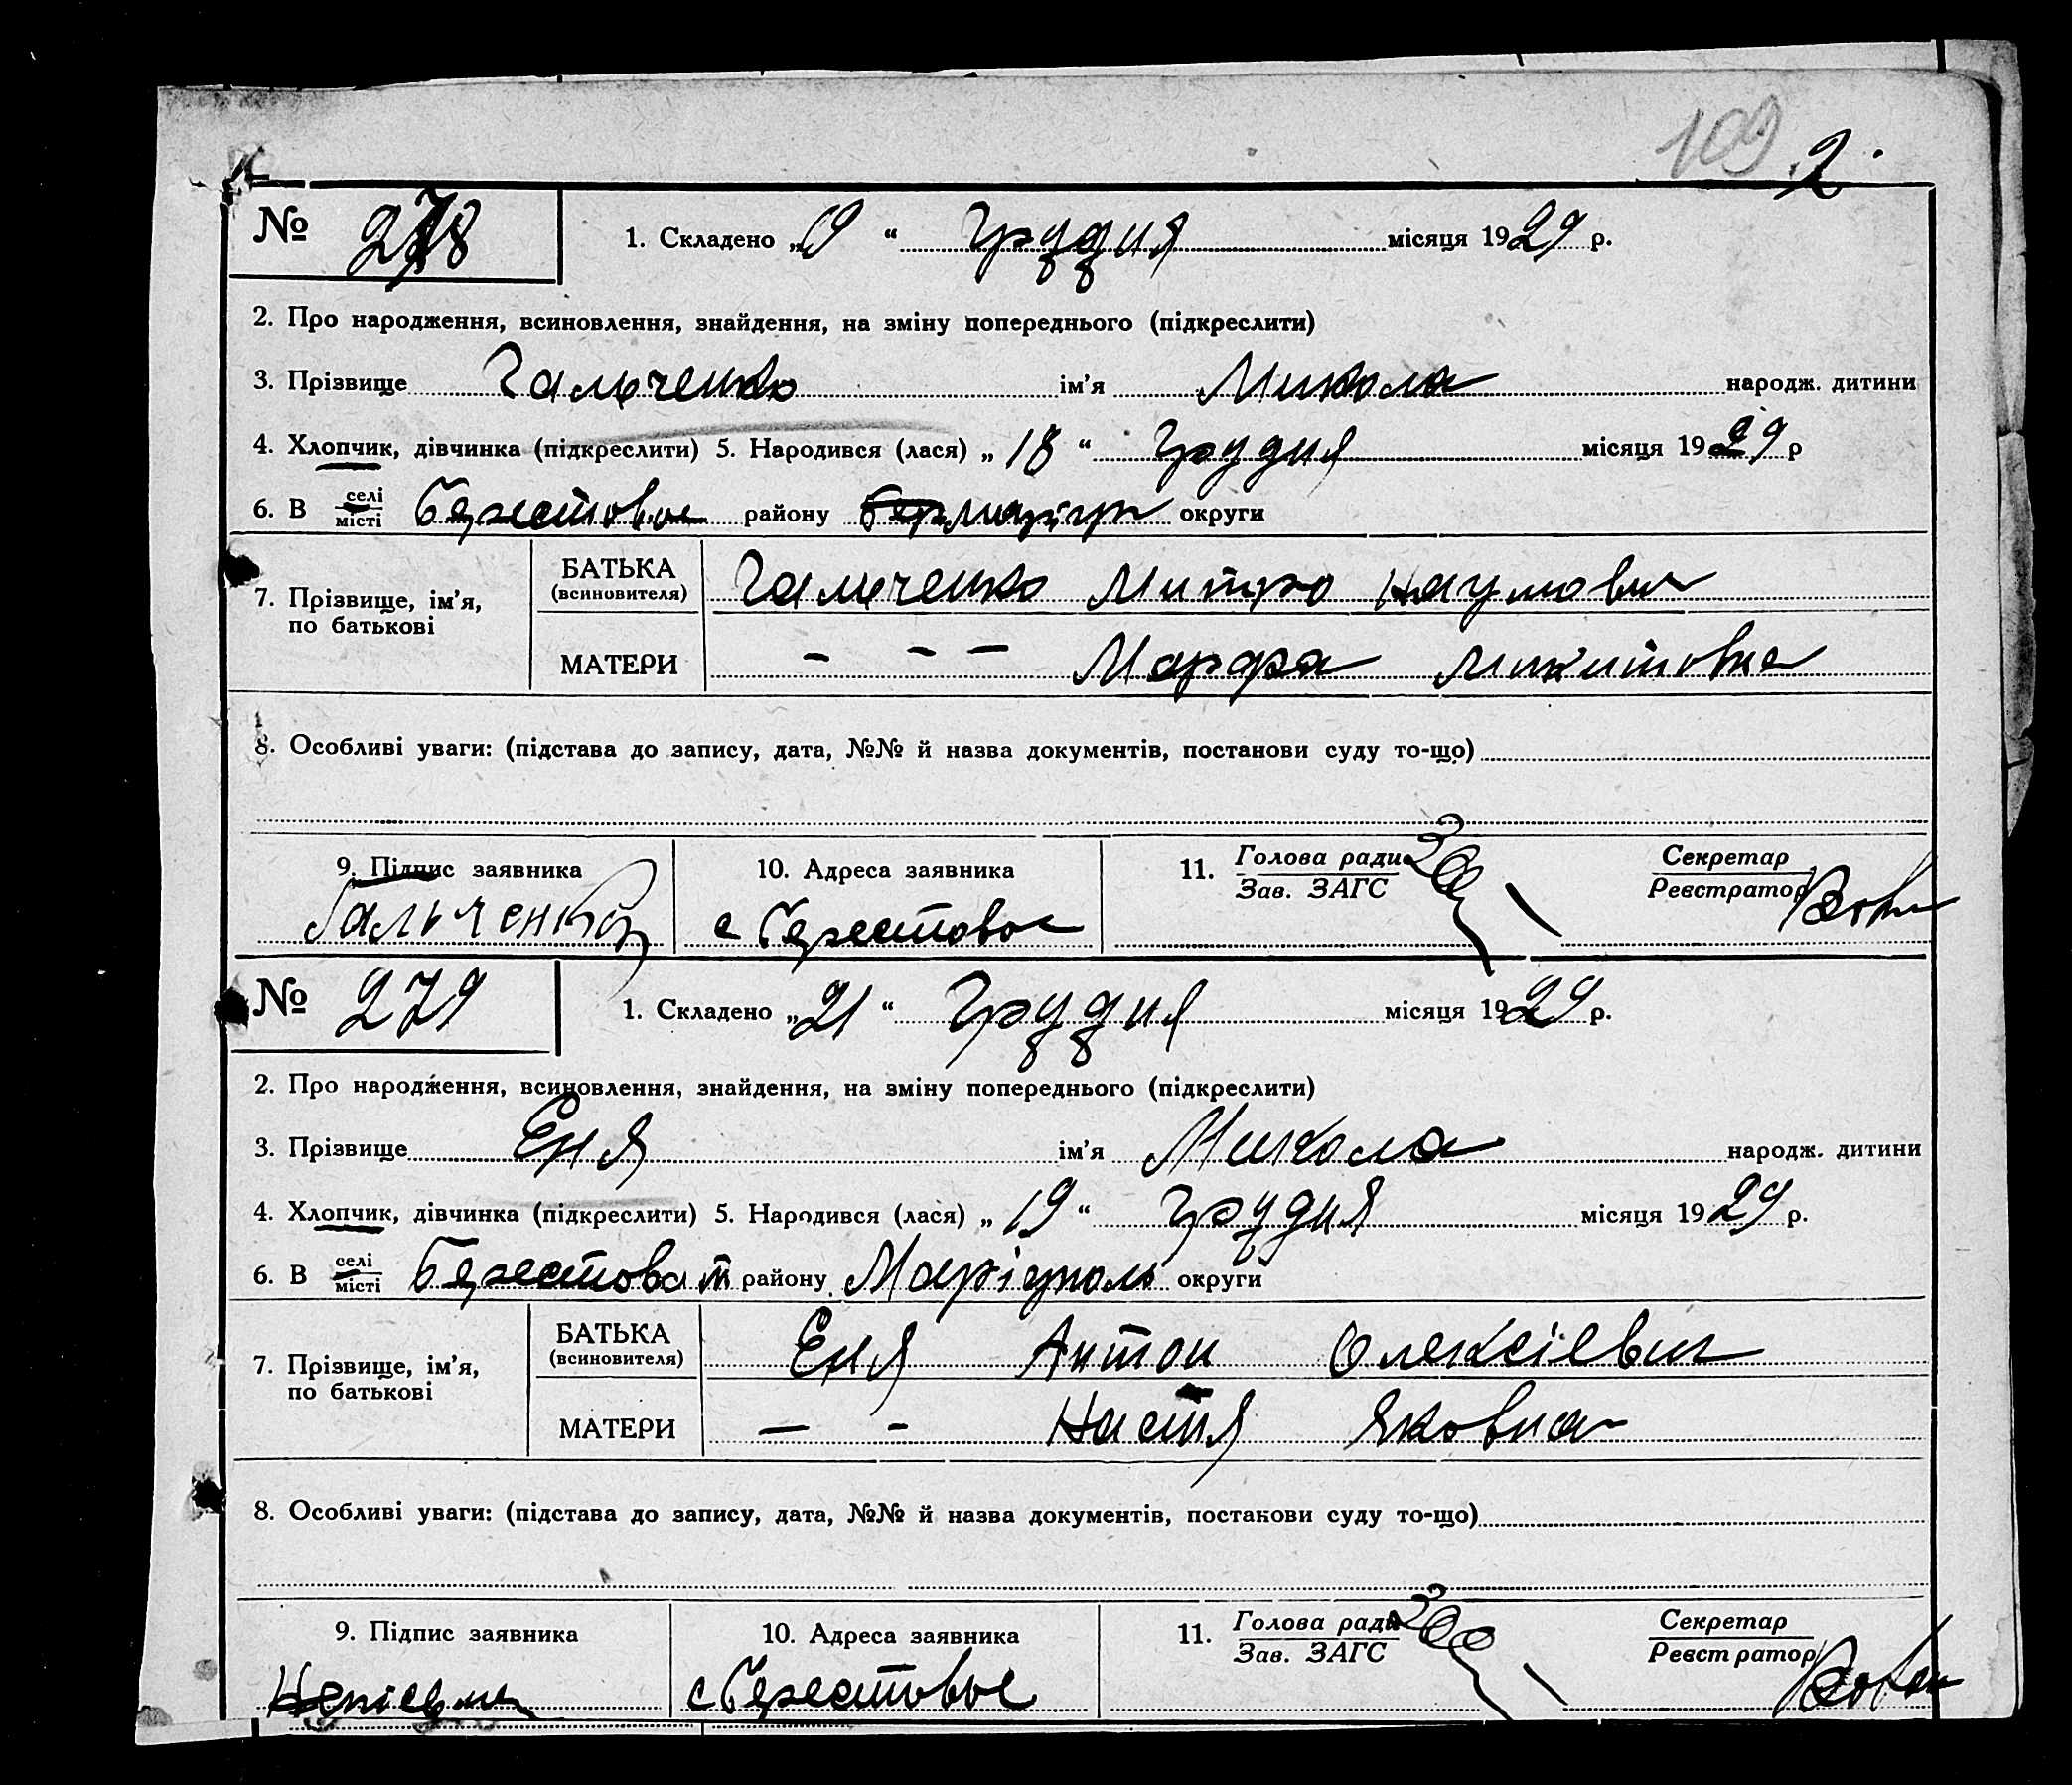 109 2
№ 278 1. Складено „19“ Грудня місяця 1929 р.
2. Про народження, всиновлення, знайдення, на зміну попереднього (підкреслити)
3. Прізвище Гальченко ім'я Микола народж. дитини
4. Хлопчик, дівчинка (підкреслити) 5. Народився (лася) „18“ грудня місяця 1929 р
6. В селі/місті Берестовое району Маріуп округи
7. Прізвище, ім'я, по батькові
БАТЬКА (всиновителя) Гальченко Митро Наумович
МАТЕРИ – – – Марфа Микитовна
8. Особливі уваги: (підстава до запису, дата, №№ й назва документів, постанови суду то-що)
9. Підпис заявника 10. Адреса заявника 11. Голова ради Секретар
Зав. ЗАГС Реєстратор
Гальченко с Берестовое
№ 279 1. Складено „21“ Грудня місяця 1929 р.
2. Про народження, всиновлення, знайдення, на зміну попереднього (підкреслити)
3. Прізвище Еня ім'я Микола народж. дитини
4. Хлопчик, дівчинка (підкреслити) 5. Народився (лася) „19“ грудня місяця 1929 р.
6. В селі/місті Берестоват району Маріуполь округи
7. Прізвище, ім'я, по батькові
БАТЬКА (всиновителя) Еня Антон Олексієвич
МАТЕРИ – – Настя Яковна
8. Особливі уваги: (підстава до запису, дата, №№ й назва документів, постанови суду то-що)
9. Підпис заявника 10. Адреса заявника 11. Голова ради Секретар
Зав. ЗАГС Реєстратор
с Берестовое